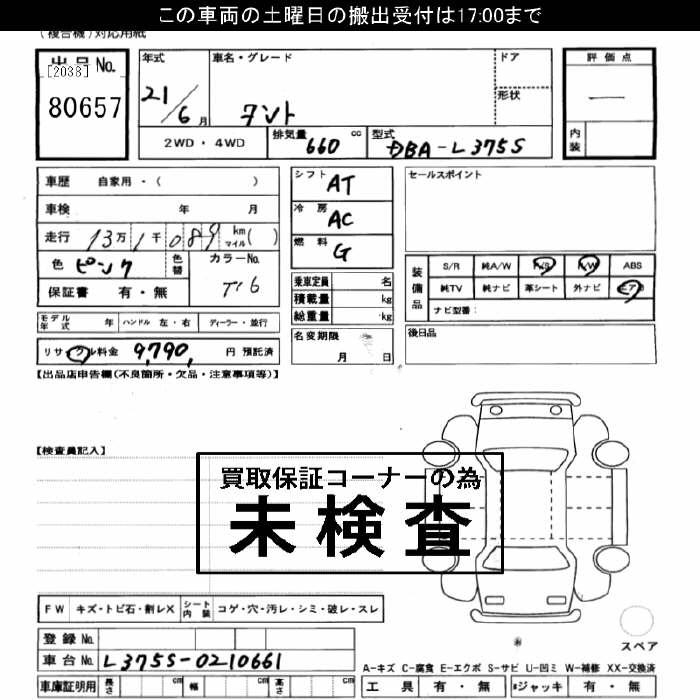 この車両の土曜日の搬出受付は17:00まで
(複合機)対応用紙
出品No.
[2038]
80657
年式
21/6月
車名・グレード
タント
ドア
形状
評価点
―
内装
2WD・4WD
排気量 660 cc
型式 DBA-L375S
車歴 自家用・( )
車検 年 月
走行 13万1千089 km マイル( )
色 ピンク
色替
カラーNo. T16
保証書 有・無
シフト AT
冷房 AC
燃料 G
乗車定員 名
積載量 kg
総重量 kg
セールスポイント
装備品
S/R 純A/W P/S P/W ABS
純TV 純ナビ 革シート 外ナビ エアB
ナビ型番:
モデル年式 年 ハンドル 左・右 ディーラー・並行
名変期限
月 日
後日品
リサイクル料金 9,790, 円 預託済
【出品店申告欄(不良箇所・欠品・注意事項等)】
【検査員記入】
買取保証コーナーの為
未検査
FW キズ・トビ石・割レX シート内装 コゲ・穴・汚レ・シミ・破レ・スレ
登録No.
車台No. L375S-0210661
車庫証明用 長さ cm 幅 cm 高さ cm
スペア
A-キズ C-腐食 E-エクボ S-サビ U-凹ミ W-補修 XX-交換済
工具 有・無 ジャッキ 有・無